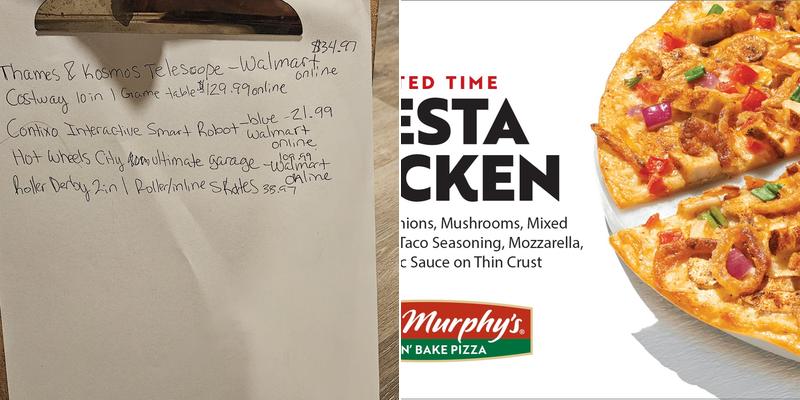 $34.97
Thames & Kosmos Telescope - Walmart
online
Costway 10 in 1 Game table $129.99 online
Contixo Interactive Smart Robot - blue - 21.99
Walmart
online
Hot Wheels City ultimate garage - Walmart
109.99
online
Roller Derby 2 in 1 Roller/inline skates 35.97
TED TIME
ESTA
CKEN
nions, Mushrooms, Mixed
Taco Seasoning, Mozzarella,
c Sauce on Thin Crust
Murphy's
N' BAKE PIZZA